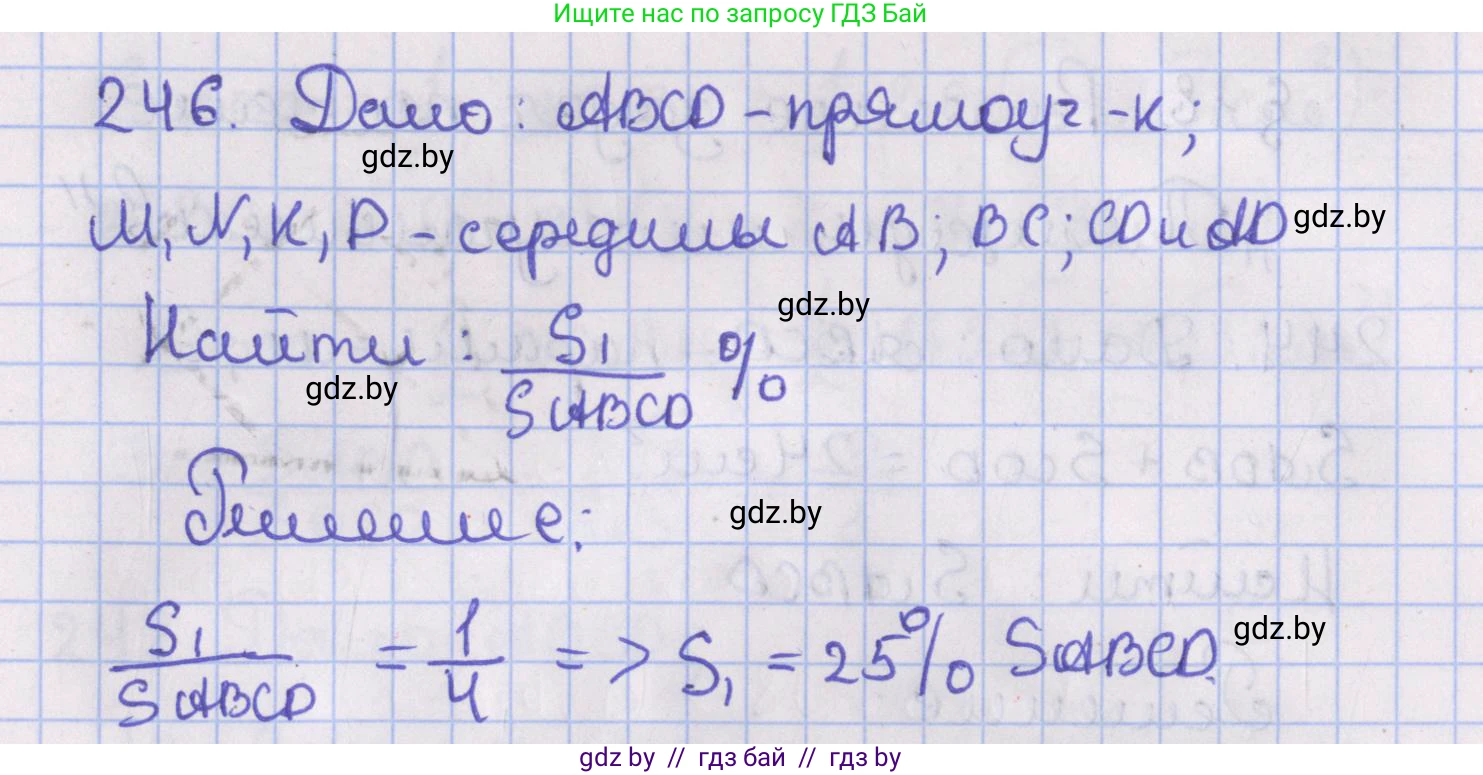 Ищите нас по запросу ГДЗ Бай
246. Дано: ABCD - прямоуг-к;
gdz.by
M, N, K, P - середины AB; BC; CD и AD gdz.by
gdz.by
Найти: S₁/SABCD %
gdz.by
Решение: gdz.by
S₁/SABCD = 1/4 => S₁ = 25% SABCD. gdz.by
gdz.by // гдз бай // гдз by